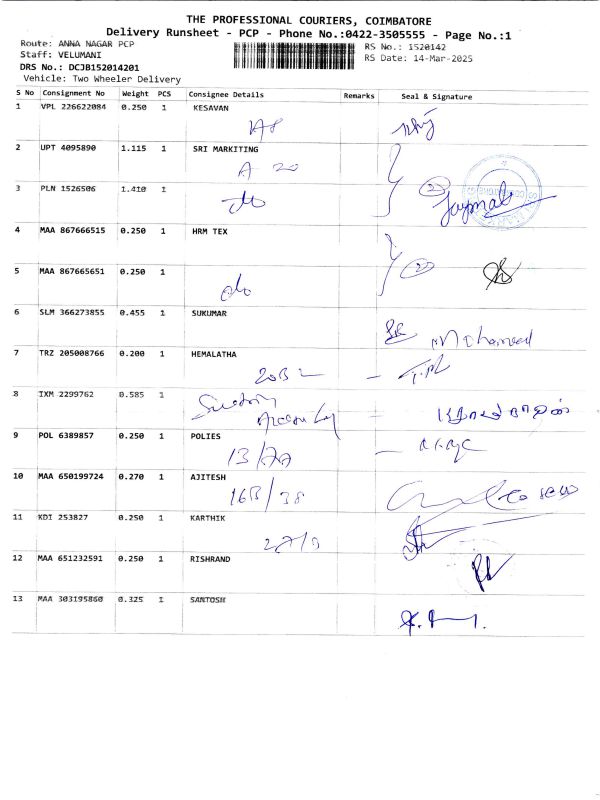 THE PROFESSIONAL COURIERS, COIMBATORE
Delivery Runsheet - PCP - Phone No.:0422-3505555 - Page No.:1
Route: ANNA NAGAR PCP RS No.: 1520142
Staff: VELUMANI RS Date: 14-Mar-2025
DRS No.: DCJB152014201
Vehicle: Two Wheeler Delivery
S No Consignment No Weight PCS Consignee Details Remarks Seal & Signature
1 VPL 226622084 0.250 1 KESAVAN
2 UPT 4095890 1.115 1 SRI MARKITING
A 20
3 PLN 1526506 1.410 1
do
4 MAA 867666515 0.250 1 HRM TEX
5 MAA 867665651 0.250 1
do
6 SLM 366273855 0.455 1 SUKUMAR
Mohamed
7 TRZ 205008766 0.200 1 HEMALATHA
20B
8 IXM 2299762 0.585 1
9 POL 6389857 0.250 1 POLIES
13/
10 MAA 650199724 0.270 1 AJITESH
16B/38
11 KDI 253827 0.250 1 KARTHIK
12 MAA 651232591 0.250 1 RISHRAND
13 MAA 303195860 0.325 1 SANTOSH